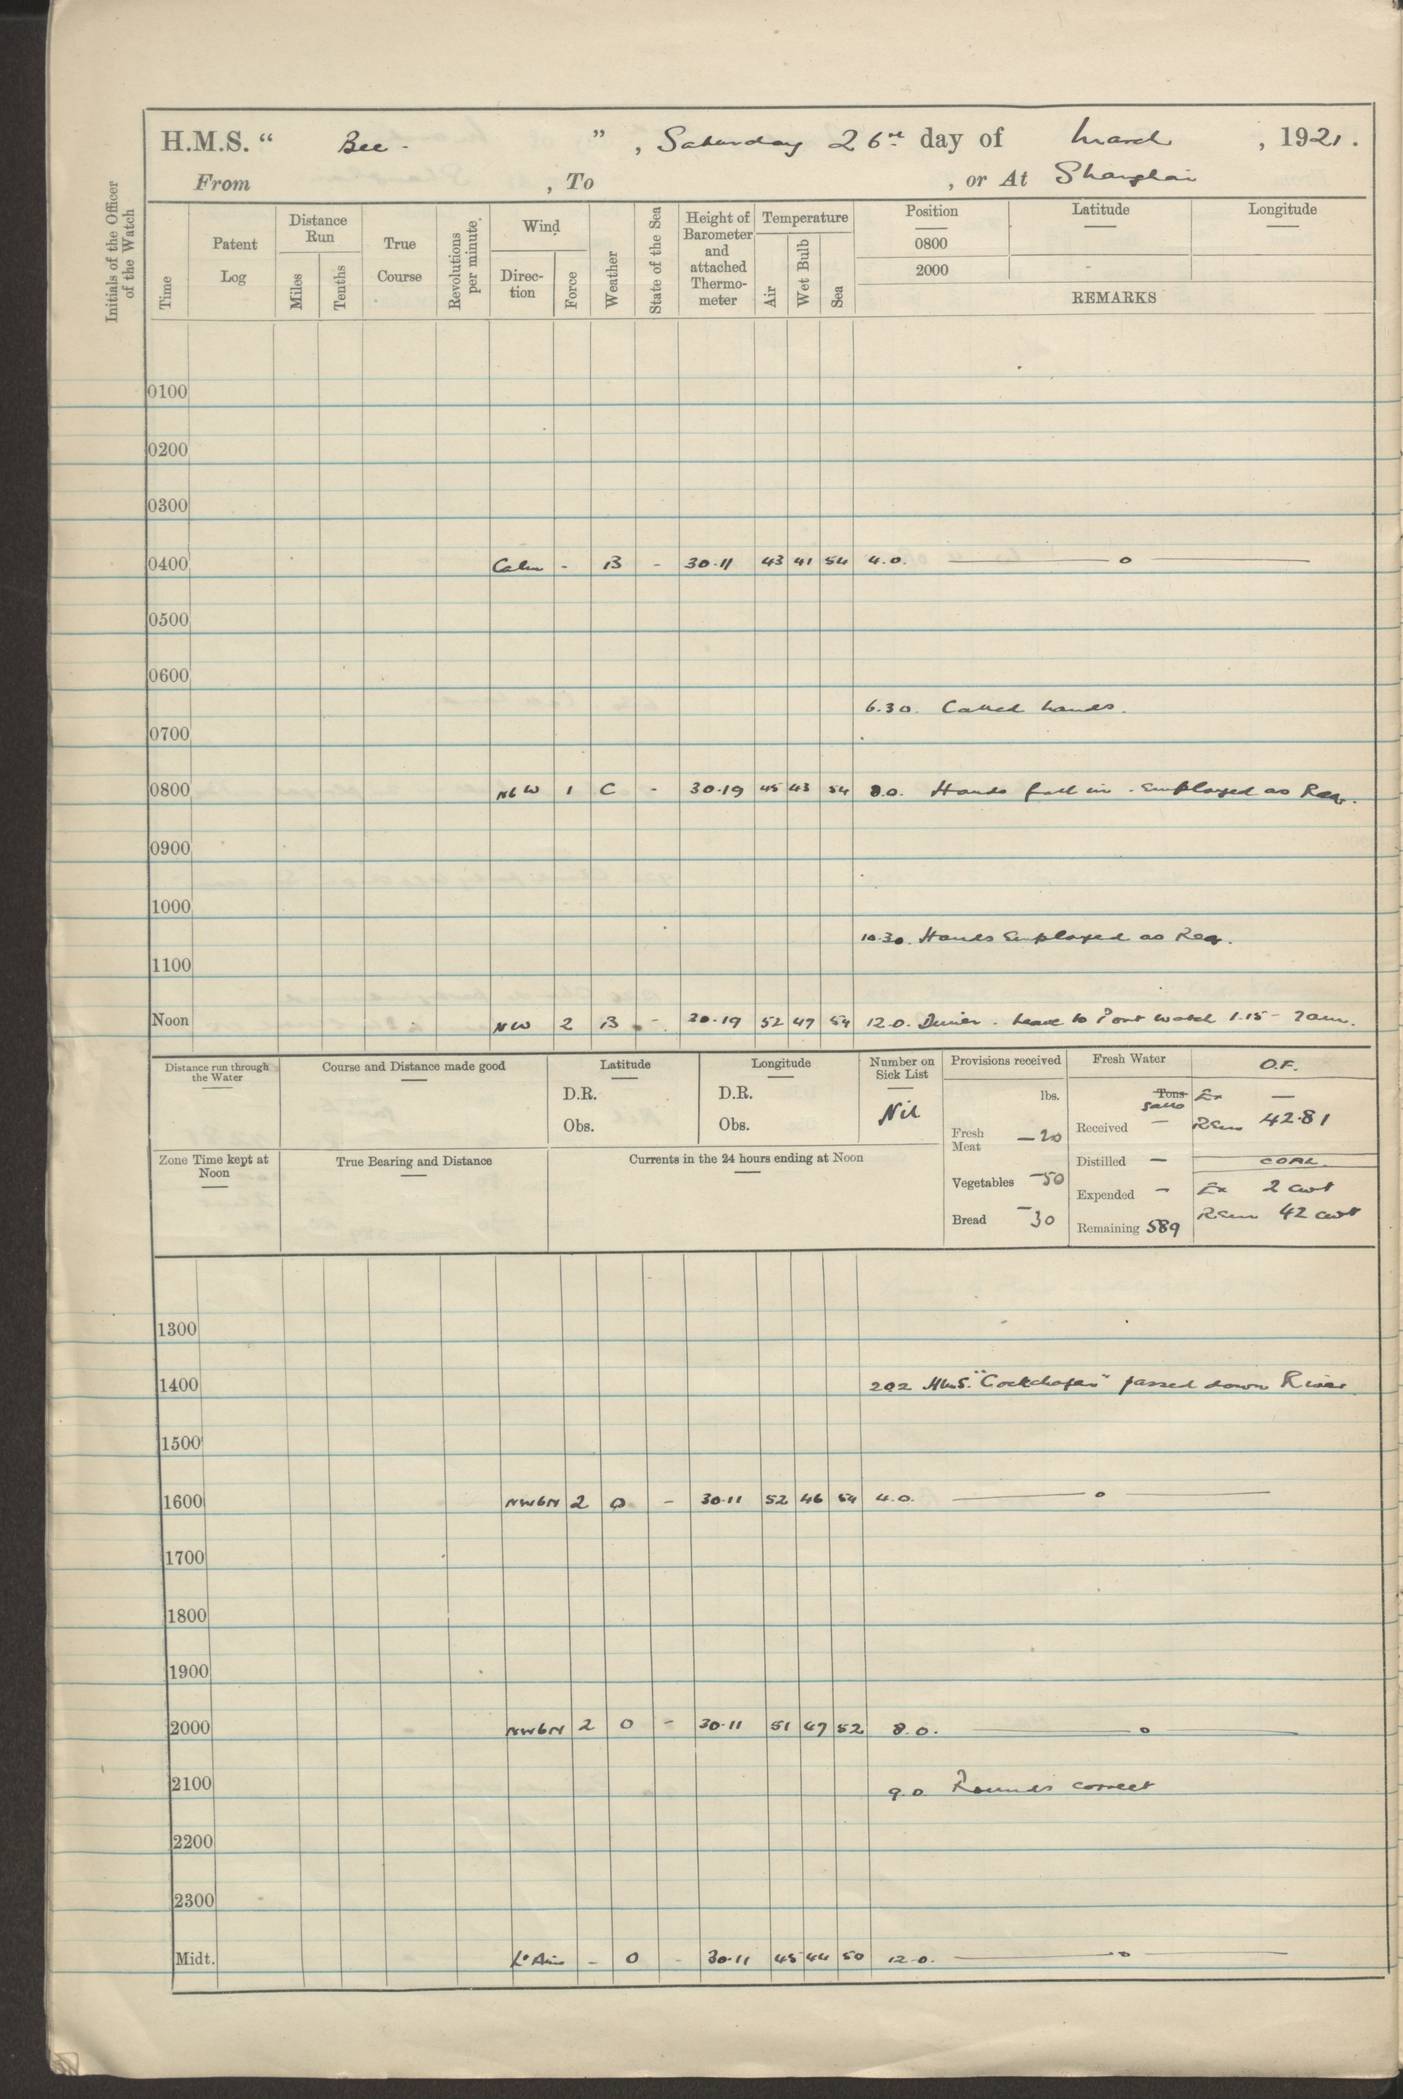 H.M.S. “ Bee. ” , Saturday 26th day of March , 1921.
From , To , or At Shanghai
Initials of the Officer of the Watch
Time
Patent Log
Distance Run
Miles
Tenths
True Course
Revolutions per minute.
Wind
Direc-tion
Force
Weather
State of the Sea
Height of Barometer and attached Thermo-meter
Temperature
Air
Wet Bulb
Sea
Position
0800
2000
Latitude
Longitude
REMARKS
0100
0200
0300
0400 Calm - B - 30.11 43 41 54 4.0. — o —
0500
0600
6.30. Called hands.
0700
0800 NbW 1 C - 30.19 45 43 54 8.0. Hands fall in. Employed as Req.
0900
1000
10.30. Hands Employed as Req.
1100
Noon NW 2 B - 30.19 52 47 54 12.0. Dinner. Leave to Port Watch 1.15 - 7am.
Distance run through the Water
Course and Distance made good
Latitude
D.R.
Obs.
Longitude
D.R.
Obs.
Number on Sick List
Nil
Provisions received
lbs.
Fresh Meat — 20
Vegetables — 50
Bread — 30
Fresh Water
Tons
Received —
Distilled —
Expended -
Remaining 589
O.F.
Ex —
Rem 42.81
COAL.
Ex 2 cwt
Rem 42 cwt
Zone Time kept at Noon
True Bearing and Distance
Currents in the 24 hours ending at Noon
1300
1400 2.02 HMS. "Cockchafer" passed down River
1500
1600 NWbN 2 O - 30.11 52 46 54 4.0. — o —
1700
1800
1900
2000 NWbN 2 O - 30.11 51 47 52 8.0. — o —
2100 9.0 Rounds correct
2200
2300
Midt. Lt Airs - O - 30.11 45 44 50 12.0. — o —